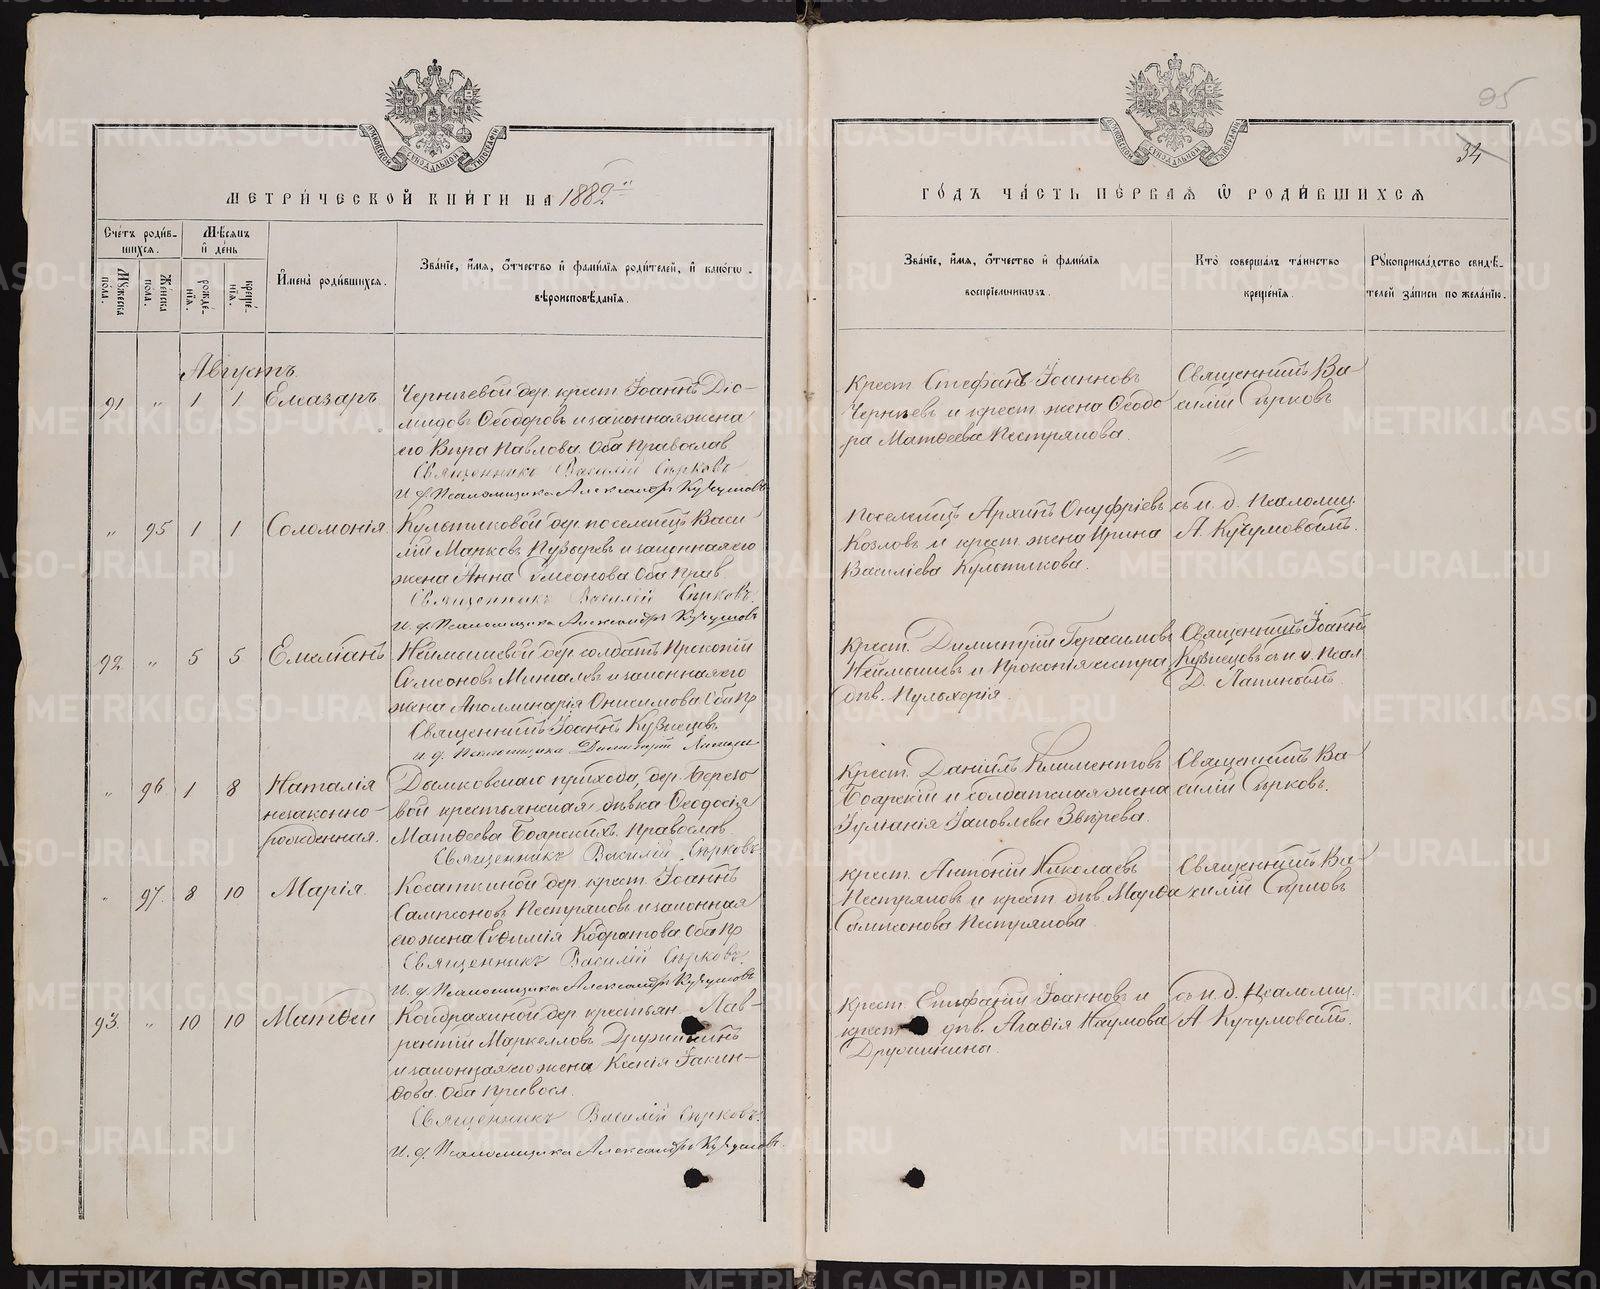 95
34
МЕТРИЧЕСКОЙ КНИГИ НА 1882й
ГОДЪ ЧАСТЬ ПЕРВАЯ Ѡ РОДИВШИХСЯ
Счетъ родив-
шихся.
Мужеска пола.
Женска пола.
Мѣсяцъ и день
рожде-
нія.
креще-
нія.
Имена родившихся.
Званіе, имя, отчество и фамилія родителей, и какогѡ
вѣроисповѣданія.
Званіе, имя, отчество и фамилія
воспріемникѡвъ.
Кто совершалъ таинство
крещенія.
Рукоприкладство свидѣ-
телей записи по желанію.
Августъ
91 " 1 1 Елеазаръ
Черныевой дер. крест. Іоаннъ Діо-
мидовъ Ѳеодоровъ и законная жена
его Вѣра Павлова. Оба Православ
Священникъ Василій Сырковъ
И. д. Псаломщика Александръ Кучумовъ
Крест. Стефанъ Іоанновъ
Черныевъ и крест. жена Ѳеодо
ра Матѳеева Пестрякова.
Священникъ Ва-
силій Сырковъ
" 95 1 1 Соломонія.
Культиковой дер. поселенецъ Васи
лій Марковъ Пузыревъ и законная его
жена Анна Сѵмеонова Оба Прав
Священникъ Василій Сырковъ.
И. д. Псаломщика Александръ Кучумовъ
Поселенецъ Архипъ Онуфріевъ
Козловъ и крест. жена Ирина
Василіева Культикова.
съ и. д. Псаломщ.
А. Кучумовымъ.
92 " 5 5 Емеліанъ
Неймышевой дер. солдатъ Прокопій
Сѵмеоновъ Минѣевъ и законная его
жена Аполлинарія Онисимова Оба Пр
Священникъ Іоаннъ Кузнецовъ
и. д. Псаломщика Димитрій Лапинъ
Крест. Димитрій Герасимовъ
Неймышевъ и Прокопія сестра
дѣв. Пульхерія.
Священникъ Іоаннъ
Кузнецовъ съ и. д. Псал
Д. Лапинымъ.
" 96 1 8 Наталія
незаконно-
рожденная.
Дымковскаго прихода, дер. Березо
вой крестьянская дѣвка Ѳеодосія
Матѳеева Боярскихъ. Православ.
Священникъ Василій Сырковъ
Крест. Даніилъ Климентовъ
Боярскій и солдатская жена
Іуліанія Іаковлева Звѣрева.
Священникъ Ва
силій Сырковъ.
" 97. 8 10 Марія.
Косаткиной дер. крест. Іоаннъ
Сампсоновъ Пестряковъ и законная
его жена Евѳимія Кодратова Оба Пр
Священникъ Василій Сырковъ.
И. д. Псаломщика Александръ Кучумовъ
крест. Антоній Николаевъ
Пестряковъ и крест. дѣв. Марѳа
Сампсонова Пестрякова.
Священникъ Ва-
силій Сырковъ
93. " 10 10 Матѳей
Кондрахиной дер. крестьян. Лав-
рентій Маркелловъ Дружининъ
и законная его жена Ксенія Іакин-
ѳова. Оба Правосл.
Священникъ Василій Сырковъ.
И. д. Псаломщика Александръ Кучумовъ.
Крест. Епифаній Іоанновъ и
крест. дѣв. Агаѳія Наумова
Дружинины.
съ и. д. Псаломщ.
А. Кучумовымъ.